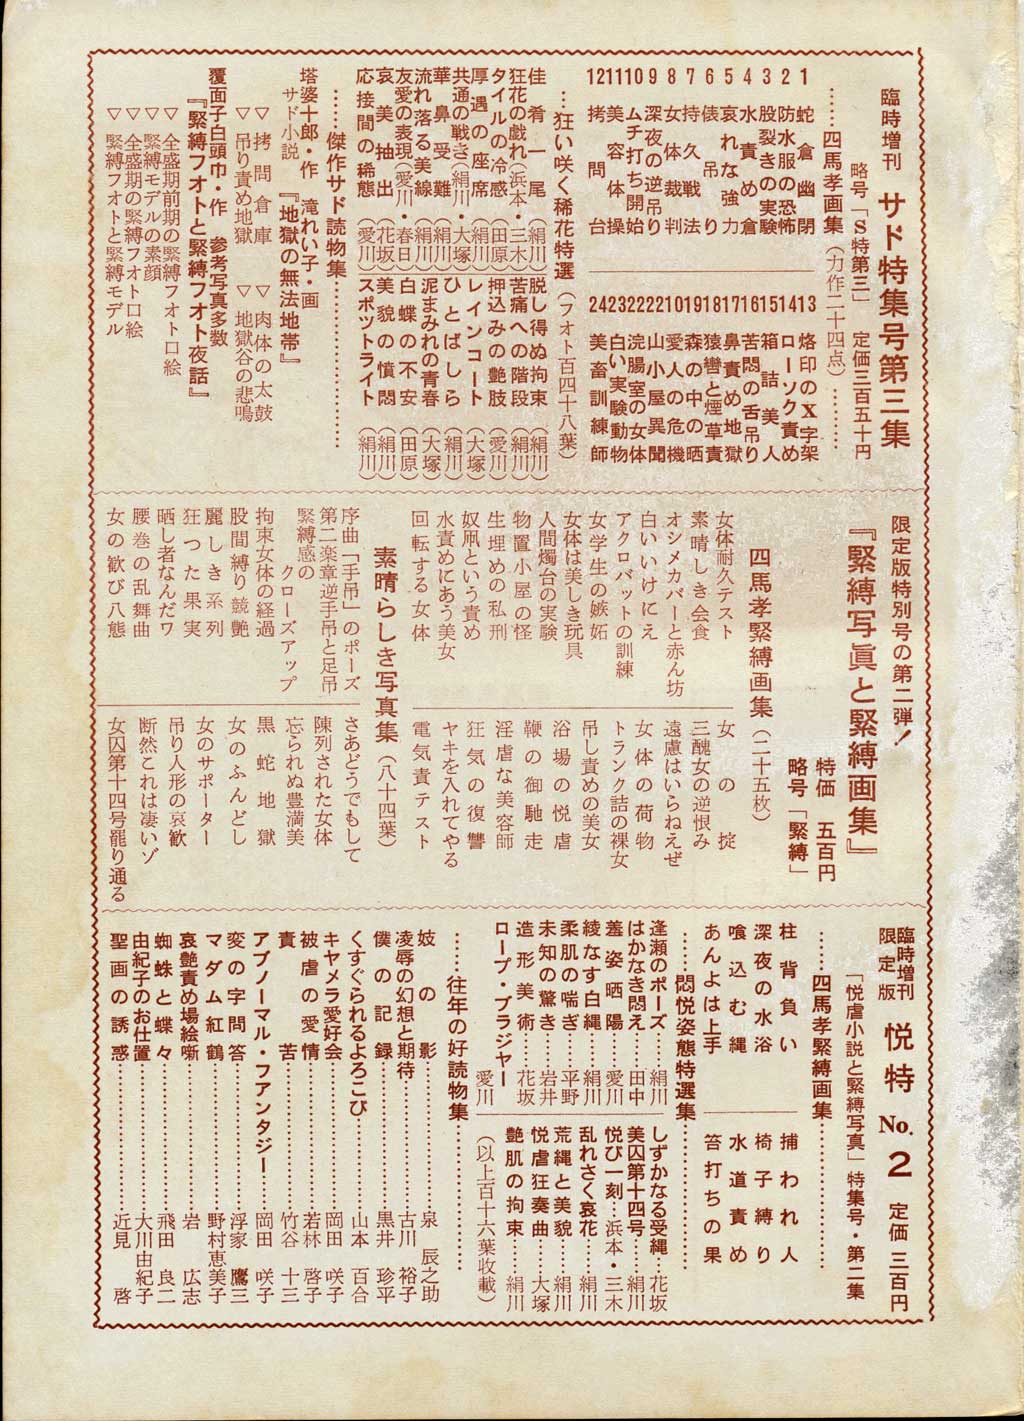 臨時増刊 サド特集号第三集
略号「S特第三」 定価三百五十円
……四馬孝画集(力作二十四点)……
1 蛇倉幽閉
2 防水服の恐怖
3 股裂きの実験
4 水責め倉
5 哀れな強力
6 俵吊り
7 持久戦法
8 女体裁判
9 深夜の逆吊り
10 ムチ打ち開始
11 美容体操
12 拷問台
13 烙印のX字架
14 ローソク責め
15 箱詰美人
16 苦悶の舌吊り
17 鼻責め地獄
18 猿轡と煙草責
19 森の中の晒
20 愛人の危機
21 山小屋異聞
22 浣腸室の女体
23 白い実験動物
24 美畜訓練師
…狂い咲く稀花特選(フォト百四十八葉)
佳肴一尾(絹川)
狂花の戯れ(浜本・三木)
タイルの冷感(田原)
厚遇の座席(絹川)
共通の戦き(絹川・大塚)
華鼻受難(絹川)
流れ落る美線(絹川)
友愛の表現(愛川・春日)
哀美抽出(花坂)
応接間の稀態(愛川)
脱し得ぬ拘束(絹川)
苦痛への階段(絹川)
押込みの艶肢(愛川)
レインコート(大塚)
ひとばしら(絹川)
泥まみれの青春(大塚)
白蝶の不安(田原)
美貌の憤悶(絹川)
スポットライト(絹川)
……傑作サド読物集……
塔婆十郎・作 滝れい子・画
サド小説 『地獄の無法地帯』
▽拷問倉庫 ▽肉体の太鼓
▽吊り責め地獄 ▽地獄谷の悲鳴
覆面子白頭巾・作 参考写真多数
『緊縛フオトと緊縛フオト夜話』
▽全盛期前期の緊縛フォト口絵
▽緊縛モデルの素顔
▽全盛期の緊縛フォト口絵
▽緊縛フォトと緊縛モデル
限定版特別号の第二弾!
『緊縛写眞と緊縛画集』
特価 五百円
略号「緊縛」
四馬孝緊縛画集(二十五枚)
女体耐久テスト
素晴しき会食
オシメカバーと赤ん坊
白いいけにえ
アクロバットの訓練
女学生の嫉妬
女体は美しき玩具
人間燭台の実験
物置小屋の怪
生埋めの私刑
奴凧という責め
水責めにあう美女
回転する女体
女の掟
三醜女の逆恨み
遠慮はいらねえぜ
女体の荷物
トランク詰の裸女
吊し責めの美女
浴場の悦虐
鞭の御馳走
淫虐な美容師
狂気の復讐
ヤキを入れてやる
電気責テスト
素晴らしき写真集(八十四葉)
序曲「手吊」のポーズ
第二楽章逆手吊と足吊
緊縛感のクローズアップ
拘束女体の経過
股間縛り競艶
麗しき系列
狂った果実
晒し者なんだワ
腰巻の乱舞曲
女の歓び八態
さあどうでもして
陳列された女体
忘られぬ豊満美
黒蛇地獄
女のふんどし
女のサポーター
吊り人形の哀歓
断然これは凄いゾ
女囚第十四号罷り通る
臨時増刊
限定版 悦特 No.2 定価 三百円
「悦虐小説と緊縛写真」特集号・第二集
……四馬孝緊縛画集……
柱背負い
深夜の水浴
喰込む縄
あんよは上手
捕われ人
椅子縛り
水道責め
笞打ちの果
……悶悦姿態特選集……
逢瀬のポーズ……絹川
はかなき悶え……田中
羞姿晒陽……愛川
綾なす白縄……絹川
柔肌の喘ぎ……平野
未知の驚き……岩井
造形美術……花坂
ロープ・ブラジャー 愛川
しずかなる受縄…花坂
美囚第十四号……絹川
悦び一刻…浜本・三木
乱れさく哀花……絹川
荒縄と美貌……絹川
悦虐狂奏曲……大塚
艶肌の拘束……絹川
(以上百十六葉収載)
……往年の好読物集……
妓の影……泉 辰之助
凌辱の幻想と期待……古川 裕子
僕の記録……黒井 珍平
くすぐられるよろこび……山本 百合
キヤメラ愛好会……岡田 咲子
被虐の愛情……若林 啓子
責苦……竹谷 十三
アブノーマル・フアンタジー……岡田 咲子
変の字問答……浮家 鷹三
マダム紅鶴……野村恵美子
哀艶責め場絵噺……岩 広志
蜘蛛と蝶々……飛田 良二
由紀子のお仕置……大川由紀子
聖画の誘惑……近見 啓